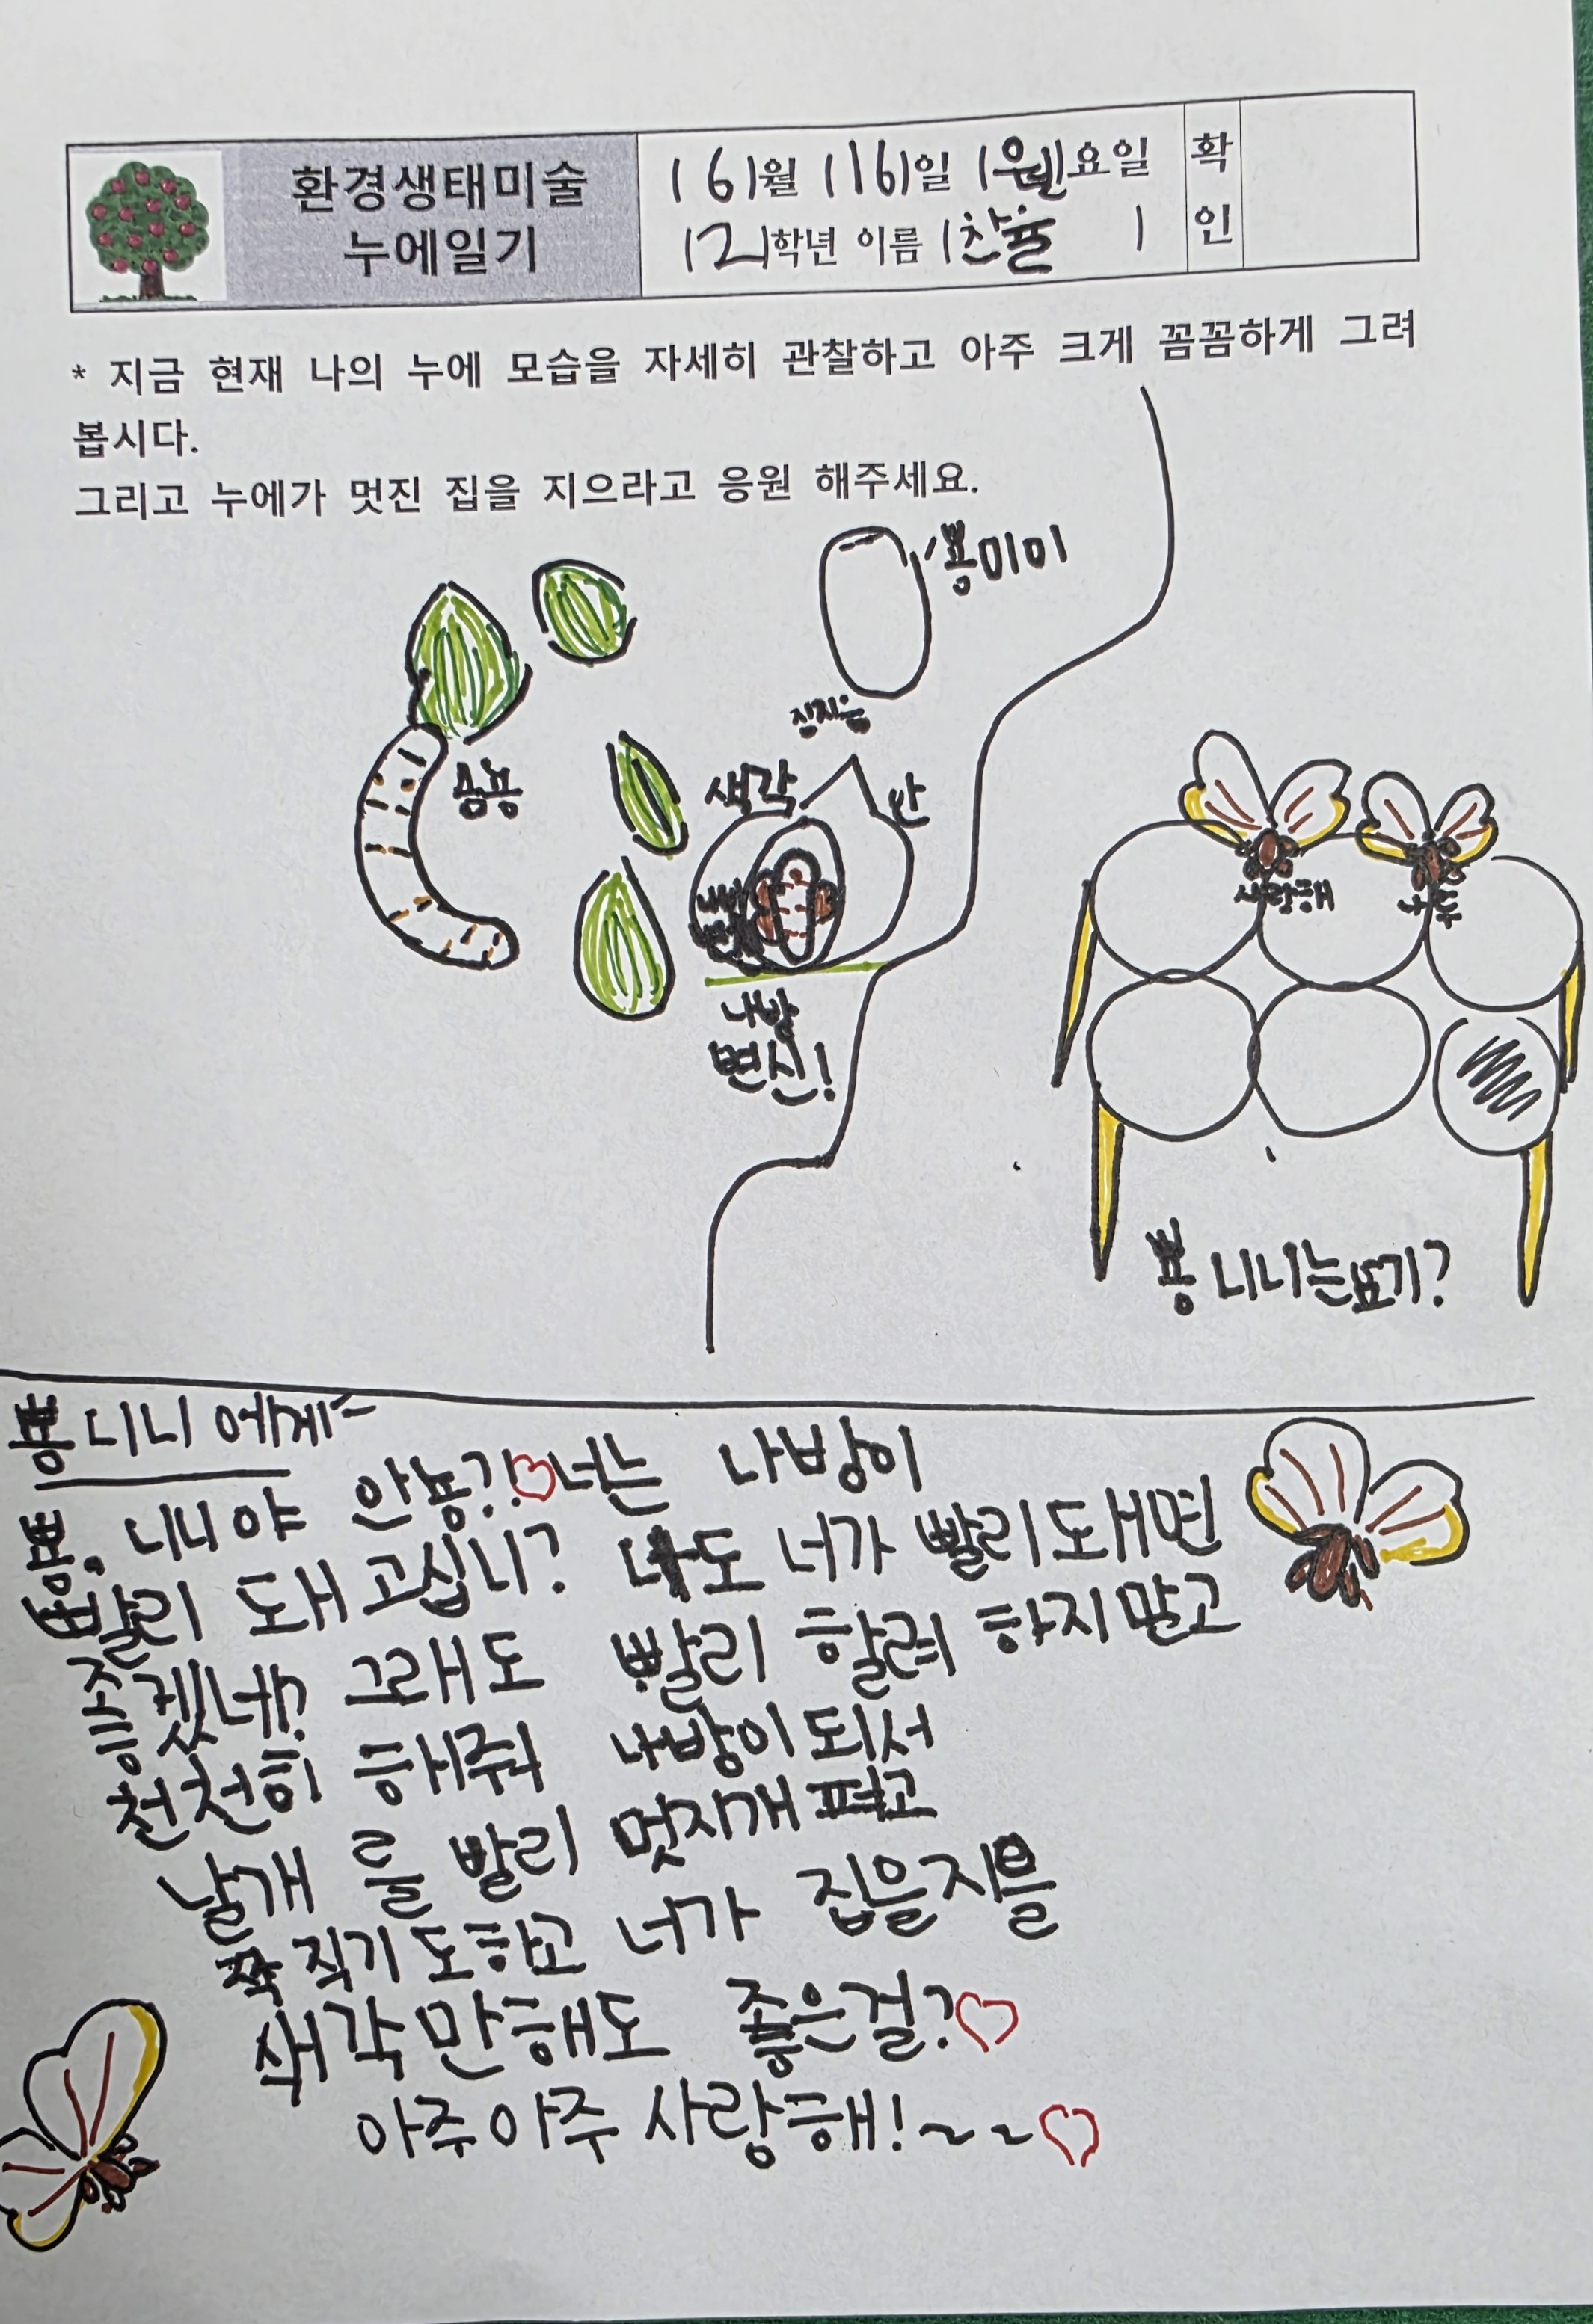 환경생태미술
누에일기
(6)월 (16)일 (월)요일
(2)학년 이름 (찬율 )
확인
* 지금 현재 나의 누에 모습을 자세히 관찰하고 아주 크게 꼼꼼하게 그려
봅시다.
그리고 누에가 멋진 집을 지으라고 응원 해주세요.
뿅미미
집지을
생각 만
뇽뇽
나방
변신!
사랑해
나두
뿅 니니는 여기?
뿅 니니 에게~
뿅. 니니야 안뇽?♡너는 나방이
빨리 돼고십니? 나도 너가 빨리돼면
좋겠네? 그래도 빨리 할려 하지말고
천천히 해줘 나방이 되서
날개 를 빨리 멋지개 펴고
짝직기도하고 너가 집을지을
생각만해도 좋은걸?♡
아주아주 사랑해!~~♡